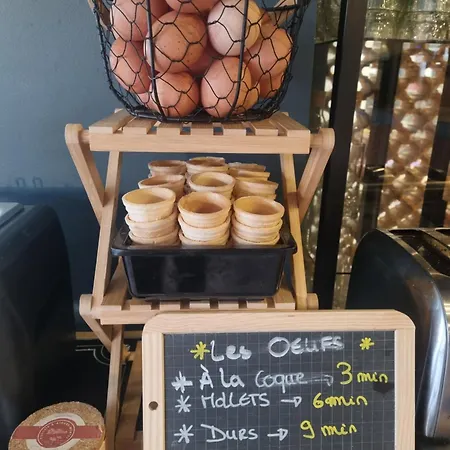 * Les OEUFS *
* À La Coque → 3 min
* MOLLETS → 6 min
* DURS → 9 min